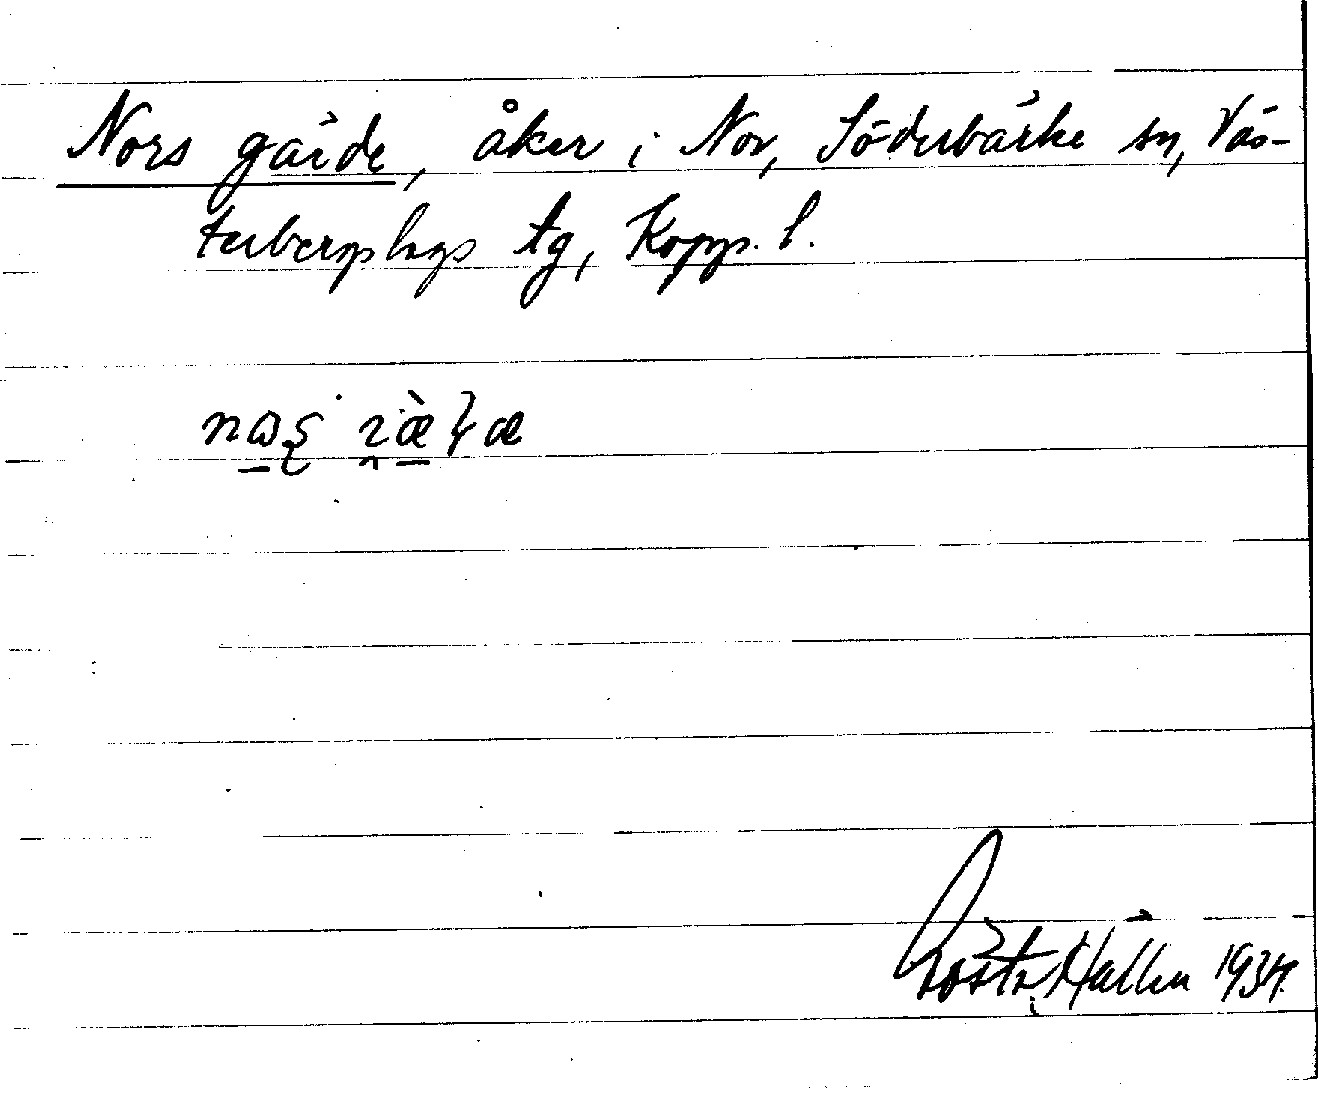 Nors gärde, åker i Nor, Söderbärke sn, Väs-
terbergslags tg, Kopp. l.
Gösta Hallén 1934.